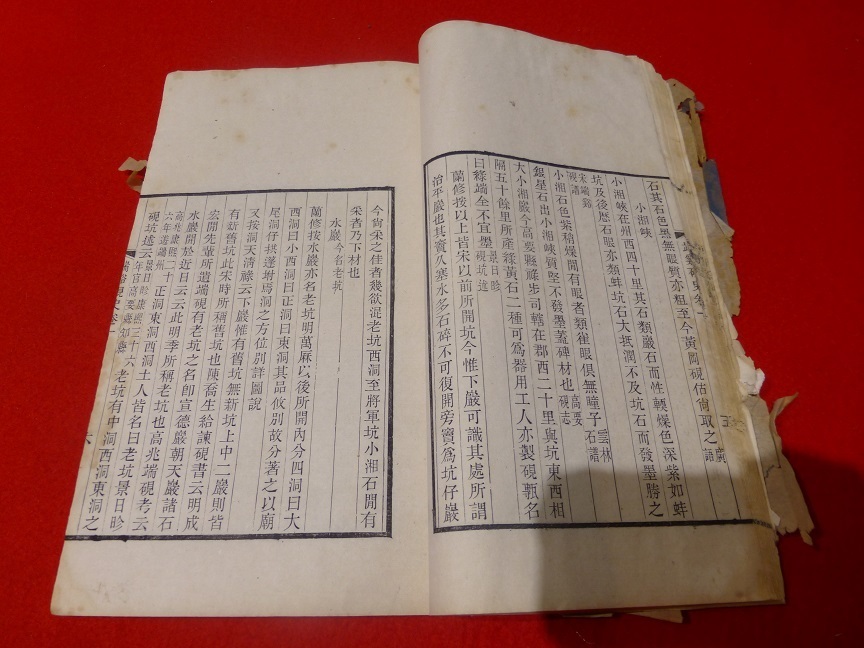 石其石色黑無眼質亦粗至今黃岡硯估尙取之 廣語
小湘峽
小湘峽在州西四十里其石類巖石而性輭燥色深紫如蚌
坑及後歷石眼亦類蚌坑石大抵潤不及坑石而發墨勝之
宋端谿硯譜
小湘石色紫稍燥閒有眼者類雀眼俱無瞳子 雲林石譜
銀星石出小湘峽質堅不發墨葢碑材也 高要硯志
大小湘巖今高要縣祿步司轄在郡西二十里與坑東西相
隔五十餘里所產綠黃石二種可爲器用工人亦製硯甎名
曰綠端全不宜墨 景日昣硯坑述
蘭修按以上皆宋以前所開坑今惟下巖可識其處所謂
治平巖也其竇久塞水多石碎不可復開旁竇爲坑仔巖
今尙采之佳者幾欲混老坑西洞至將軍坑小湘石閒有
采者乃下材也
水巖 今名老坑
蘭修按水巖亦名老坑明萬厤以後所開內分四洞曰大
西洞曰小西洞曰正洞曰東洞其品攸別故分著之以廟
尾洞仔拱蓬坿焉洞之方位別詳圖說
又按洞天淸祿云下巖惟有舊坑無新坑上中二巖則皆
有新舊坑此宋時所稱舊坑也陳喬生給諫硯書云明成
宏閒先輩所遺端硯有老坑之名卽宣德巖朝天巖諸石
水巖開於近日云云此明季所稱老坑也高兆端硯考云
高兆康熙二十六年遊端州 正洞東洞西洞土人皆名曰老坑景日昣
硯坑述云 景日昣康熙三十六年官高要縣知縣 老坑有中洞西洞東洞之
端谿硯史卷一
六